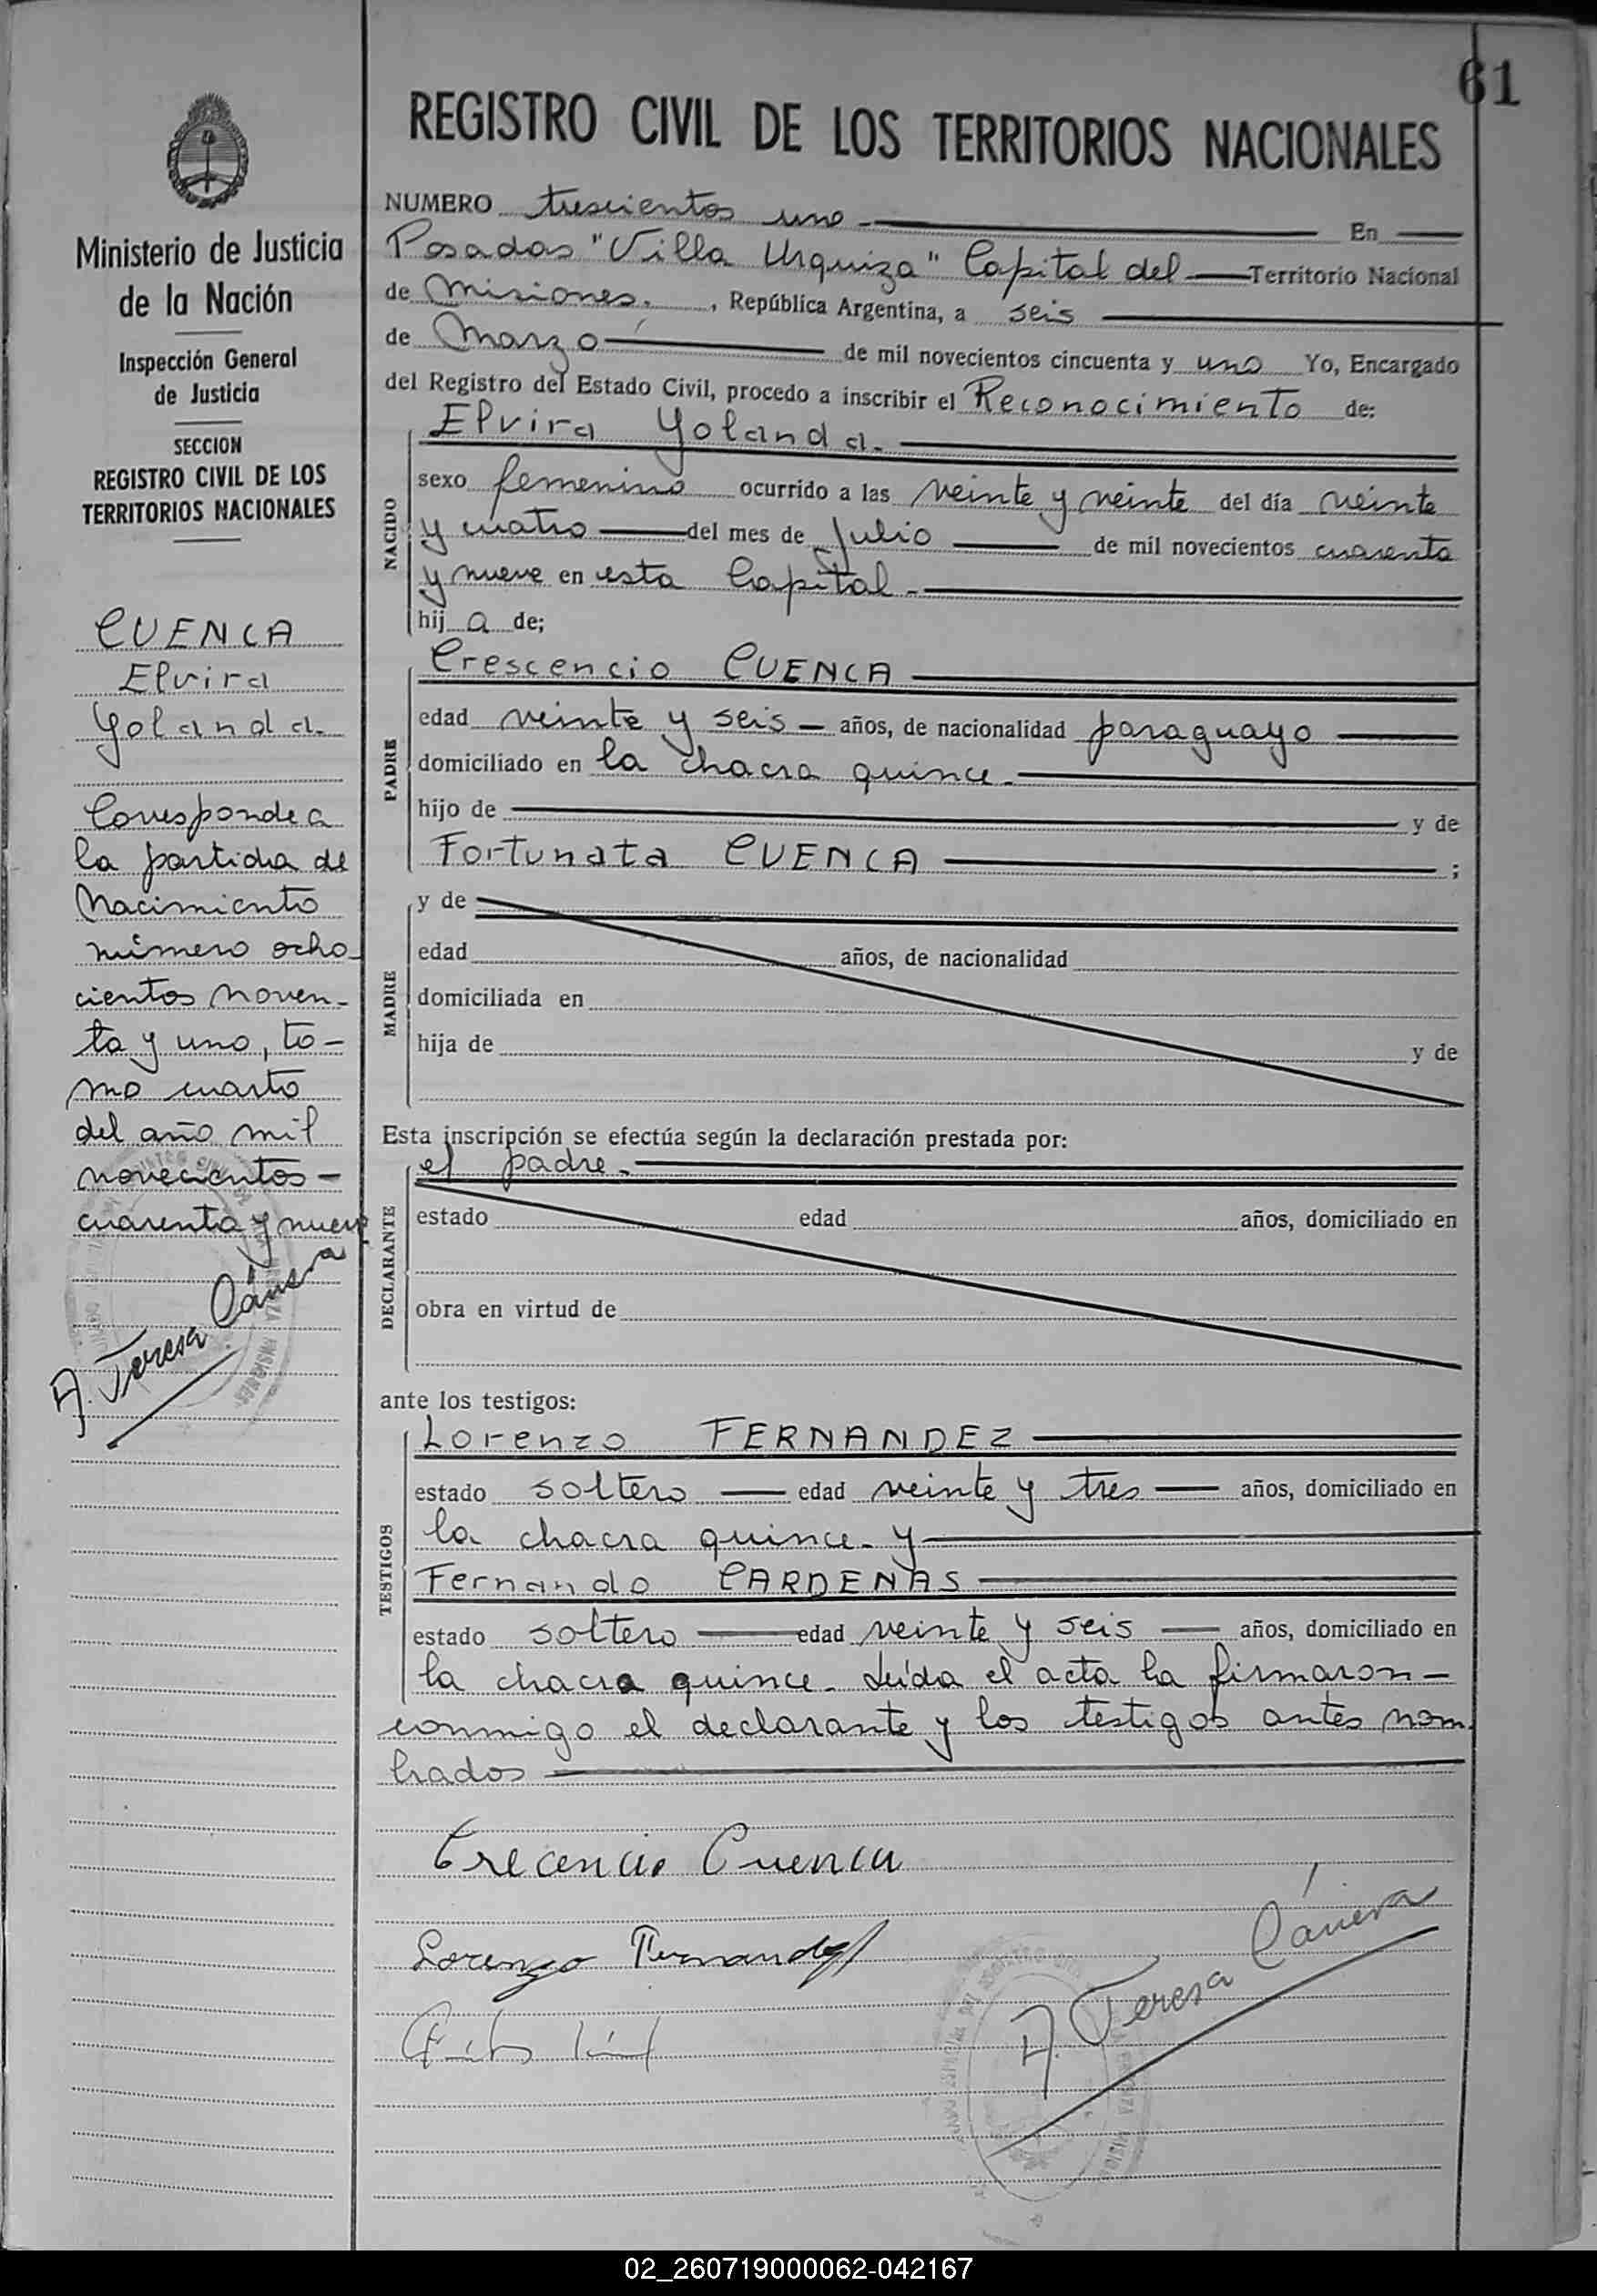 61
REGISTRO CIVIL DE LOS TERRITORIOS NACIONALES
Ministerio de Justicia
de la Nación
Inspección General
de Justicia
SECCION
REGISTRO CIVIL DE LOS
TERRITORIOS NACIONALES
CUENCA
Elvira
Yolanda.
Corresponde a
la partida de
Nacimiento
número ocho-
cientos noven-
ta y uno, to-
mo cuarto
del año mil
novecientos -
cuarenta y nueve
A. Teresa Cánera
NUMERO trescientos uno En
Posadas "Villa Urquiza" Capital del Territorio Nacional
de Misiones. , República Argentina, a seis
de Marzo de mil novecientos cincuenta y uno Yo, Encargado
del Registro del Estado Civil, procedo a inscribir el Reconocimiento de:
Elvira Yolanda.
NACIDO
sexo femenino ocurrido a las veinte y veinte del día veinte
y cuatro del mes de Julio de mil novecientos cuarenta
y nueve en esta Capital.
hij a de;
PADRE
Crescencio CUENCA
edad veinte y seis años, de nacionalidad paraguayo
domiciliado en la chacra quince.
hijo de y de
Fortunata CUENCA ;
MADRE
y de
edad años, de nacionalidad
domiciliada en
hija de y de
Esta inscripción se efectúa según la declaración prestada por:
el padre.
DECLARANTE
estado edad años, domiciliado en
obra en virtud de
ante los testigos:
TESTIGOS
Lorenzo FERNANDEZ
estado soltero edad veinte y tres años, domiciliado en
la chacra quince. y
Fernando CARDENAS
estado soltero edad veinte y seis años, domiciliado en
la chacra quince. Leída el acta la firmaron -
conmigo el declarante y los testigos antes nom-
brados
Crecencio Cuenca
Lorenzo Fernandez
A. Teresa Cánera
02_260719000062-042167